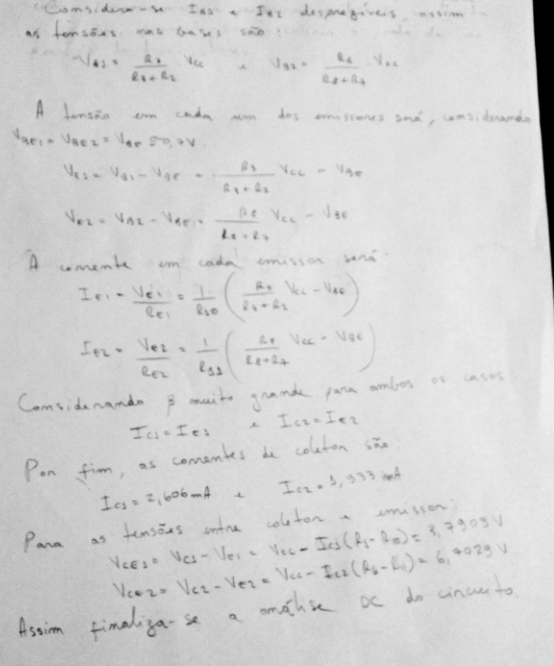 Considera-se IB1 e IB2 desprezíveis, assim
as tensões nas bases são
VB1 = R3/(R3+R2) VCC e VB2 = R8/(R8+R7) VCC
A tensão em cada um dos emissores será, considerando
VBE1 = VBE2 = VBE ≅ 0,7V.
VE1 = VB1 - VBE = R3/(R3+R2) VCC - VBE
VE2 = VB2 - VBE = R8/(R8+R7) VCC - VBE
A corrente em cada emissor será
IE1 = VE1/RE1 = 1/R10 (R3/(R3+R2) VCC - VBE)
IE2 = VE2/RE2 = 1/R11 (R8/(R8+R7) VCC - VBE)
Considerando β muito grande para ambos os casos
IC1 = IE1 e IC2 = IE2
Por fim, as correntes de coletor são:
IC1 = 2,606mA e IC2 = 1,933 mA
Para as tensões entre coletor e emissor:
VCE1 = VC1 - VE1 = VCC - IC1 = 3,7909V
VCE2 = VC2 - VE2 = VCC - IC2 = 6,4029V
Assim finaliza-se a análise DC do circuito.